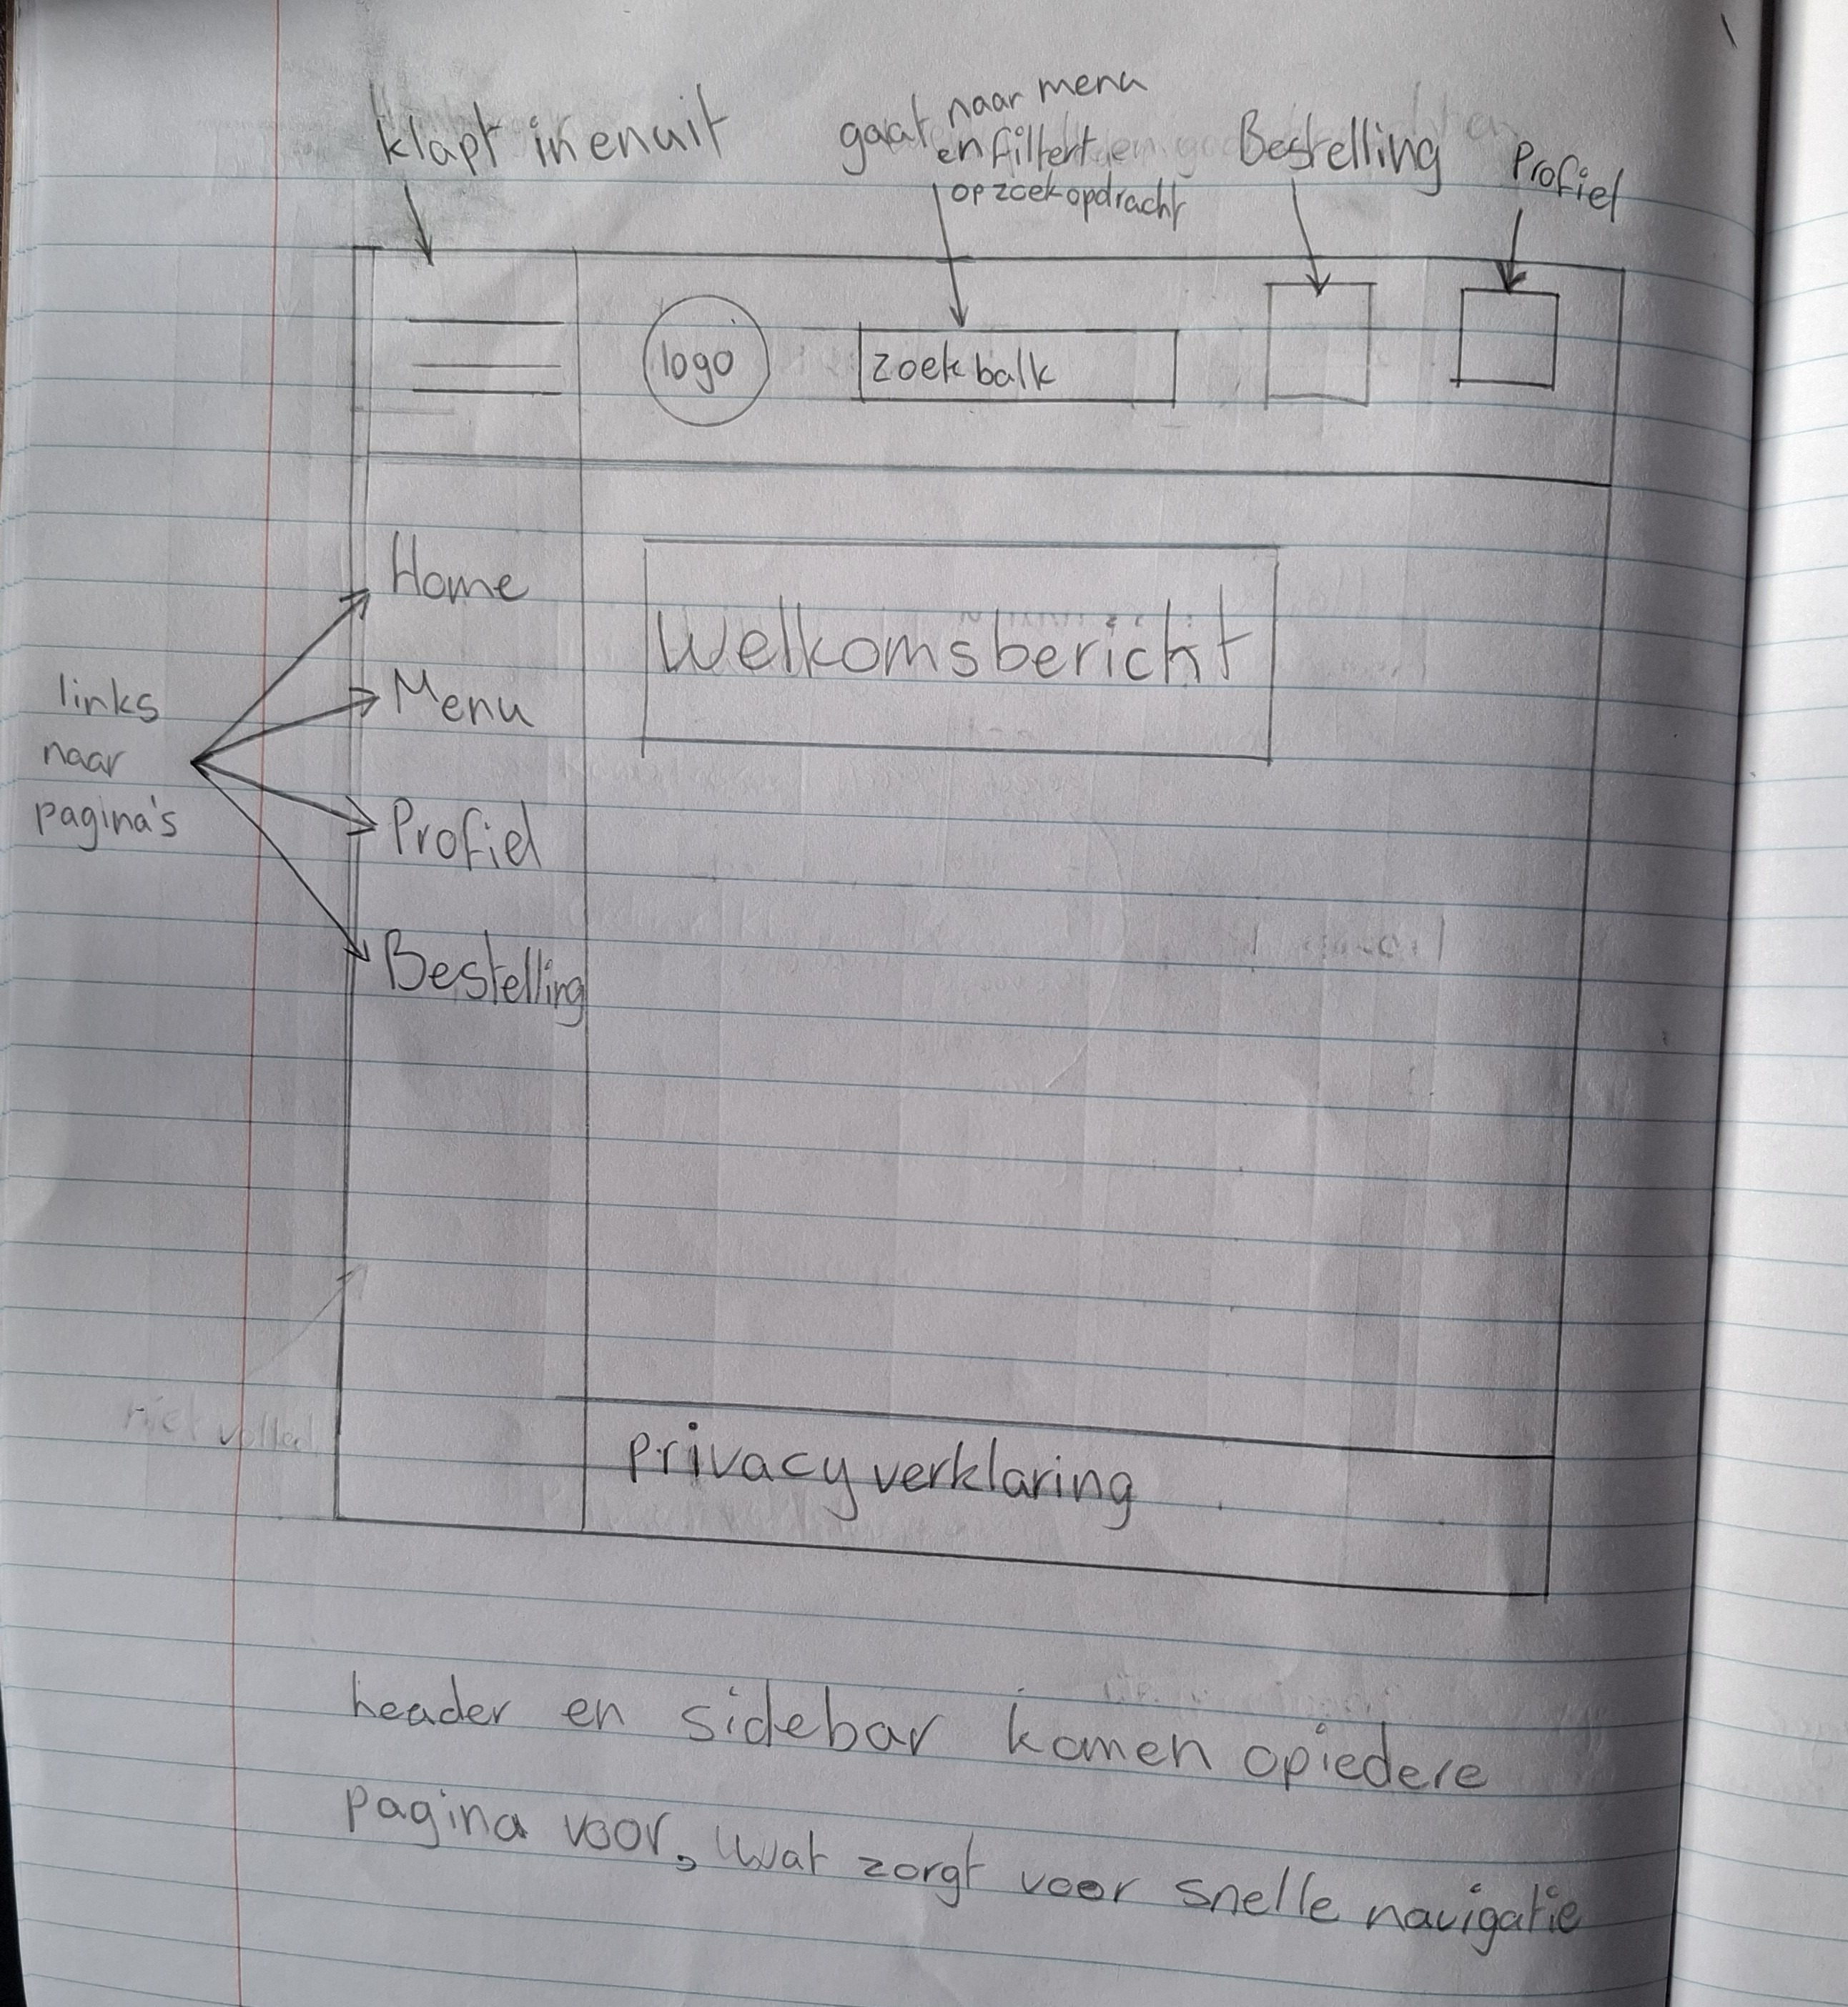 klapt in en uit
gaat naar menu
en filtert
op zoekopdracht
Bestelling
Profiel
logo
zoekbalk
Home
Welkomsbericht
links
naar
pagina's
Menu
Profiel
Bestelling
niet
privacyverklaring
header en sidebar komen op iedere
pagina voor, wat zorgt voor snelle navigatie